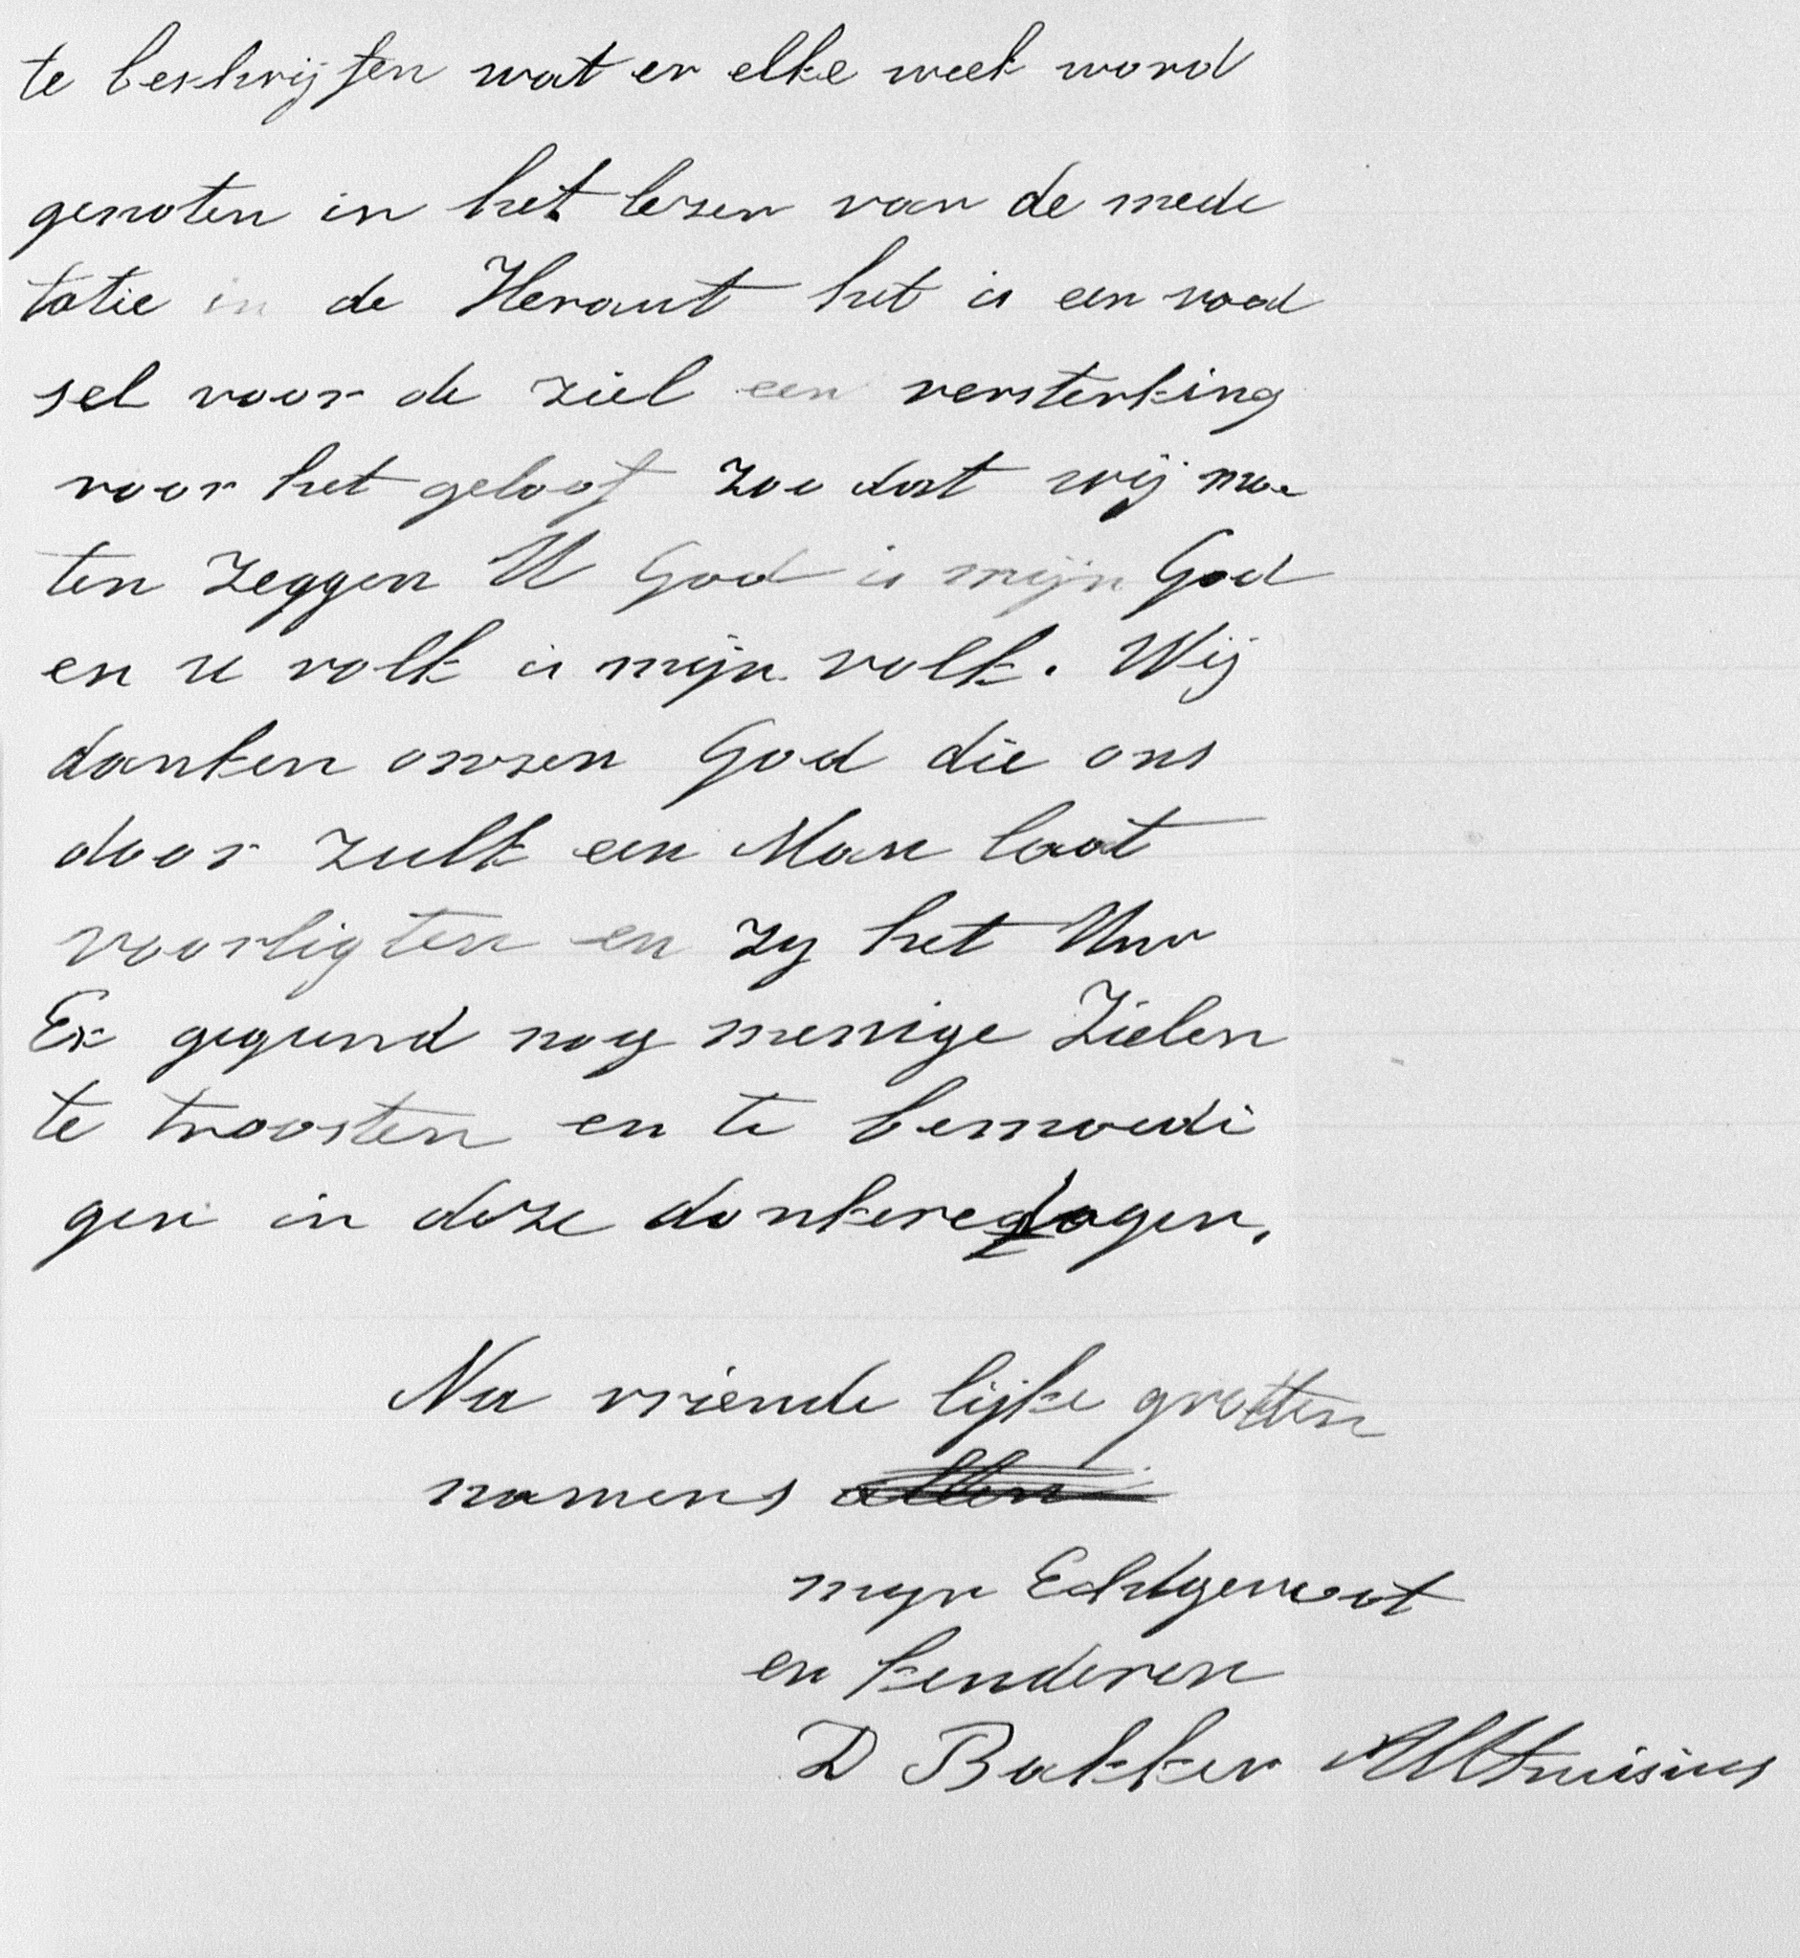 te beschrijfen wat er elke week word
genoten in het lezen van de mede
tatie in de Heraut het is een voed
sel voor de ziel een versterking
voor het geloof zoo dat wij moe
ten zeggen U God is mijn God
en u volk is mijn volk. Wij
danken onzen God die ons
door zulk een Man laat
voorligten en zy het Uw
Ex gegund nog menige Zielen
te troosten en te bemoedi
gen in deze donkere dagen.
Na vriende lijke groetten
namens allen
myn Echtgenoot
en kenderen
D Bakker Althuisius